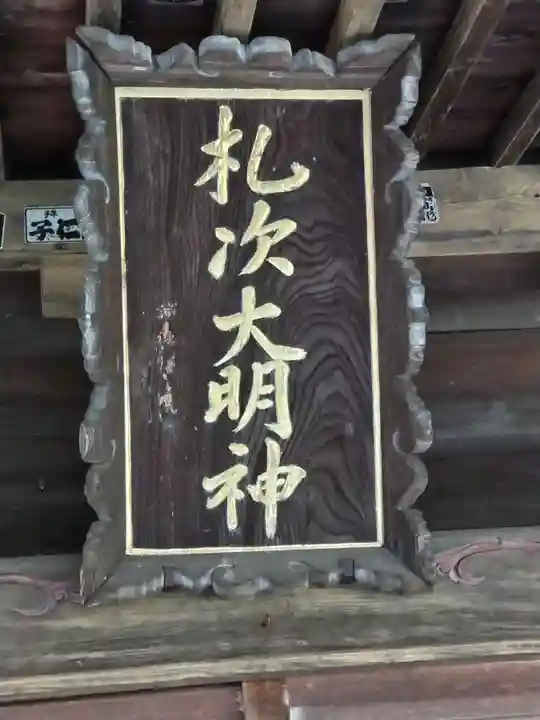 札次大明神